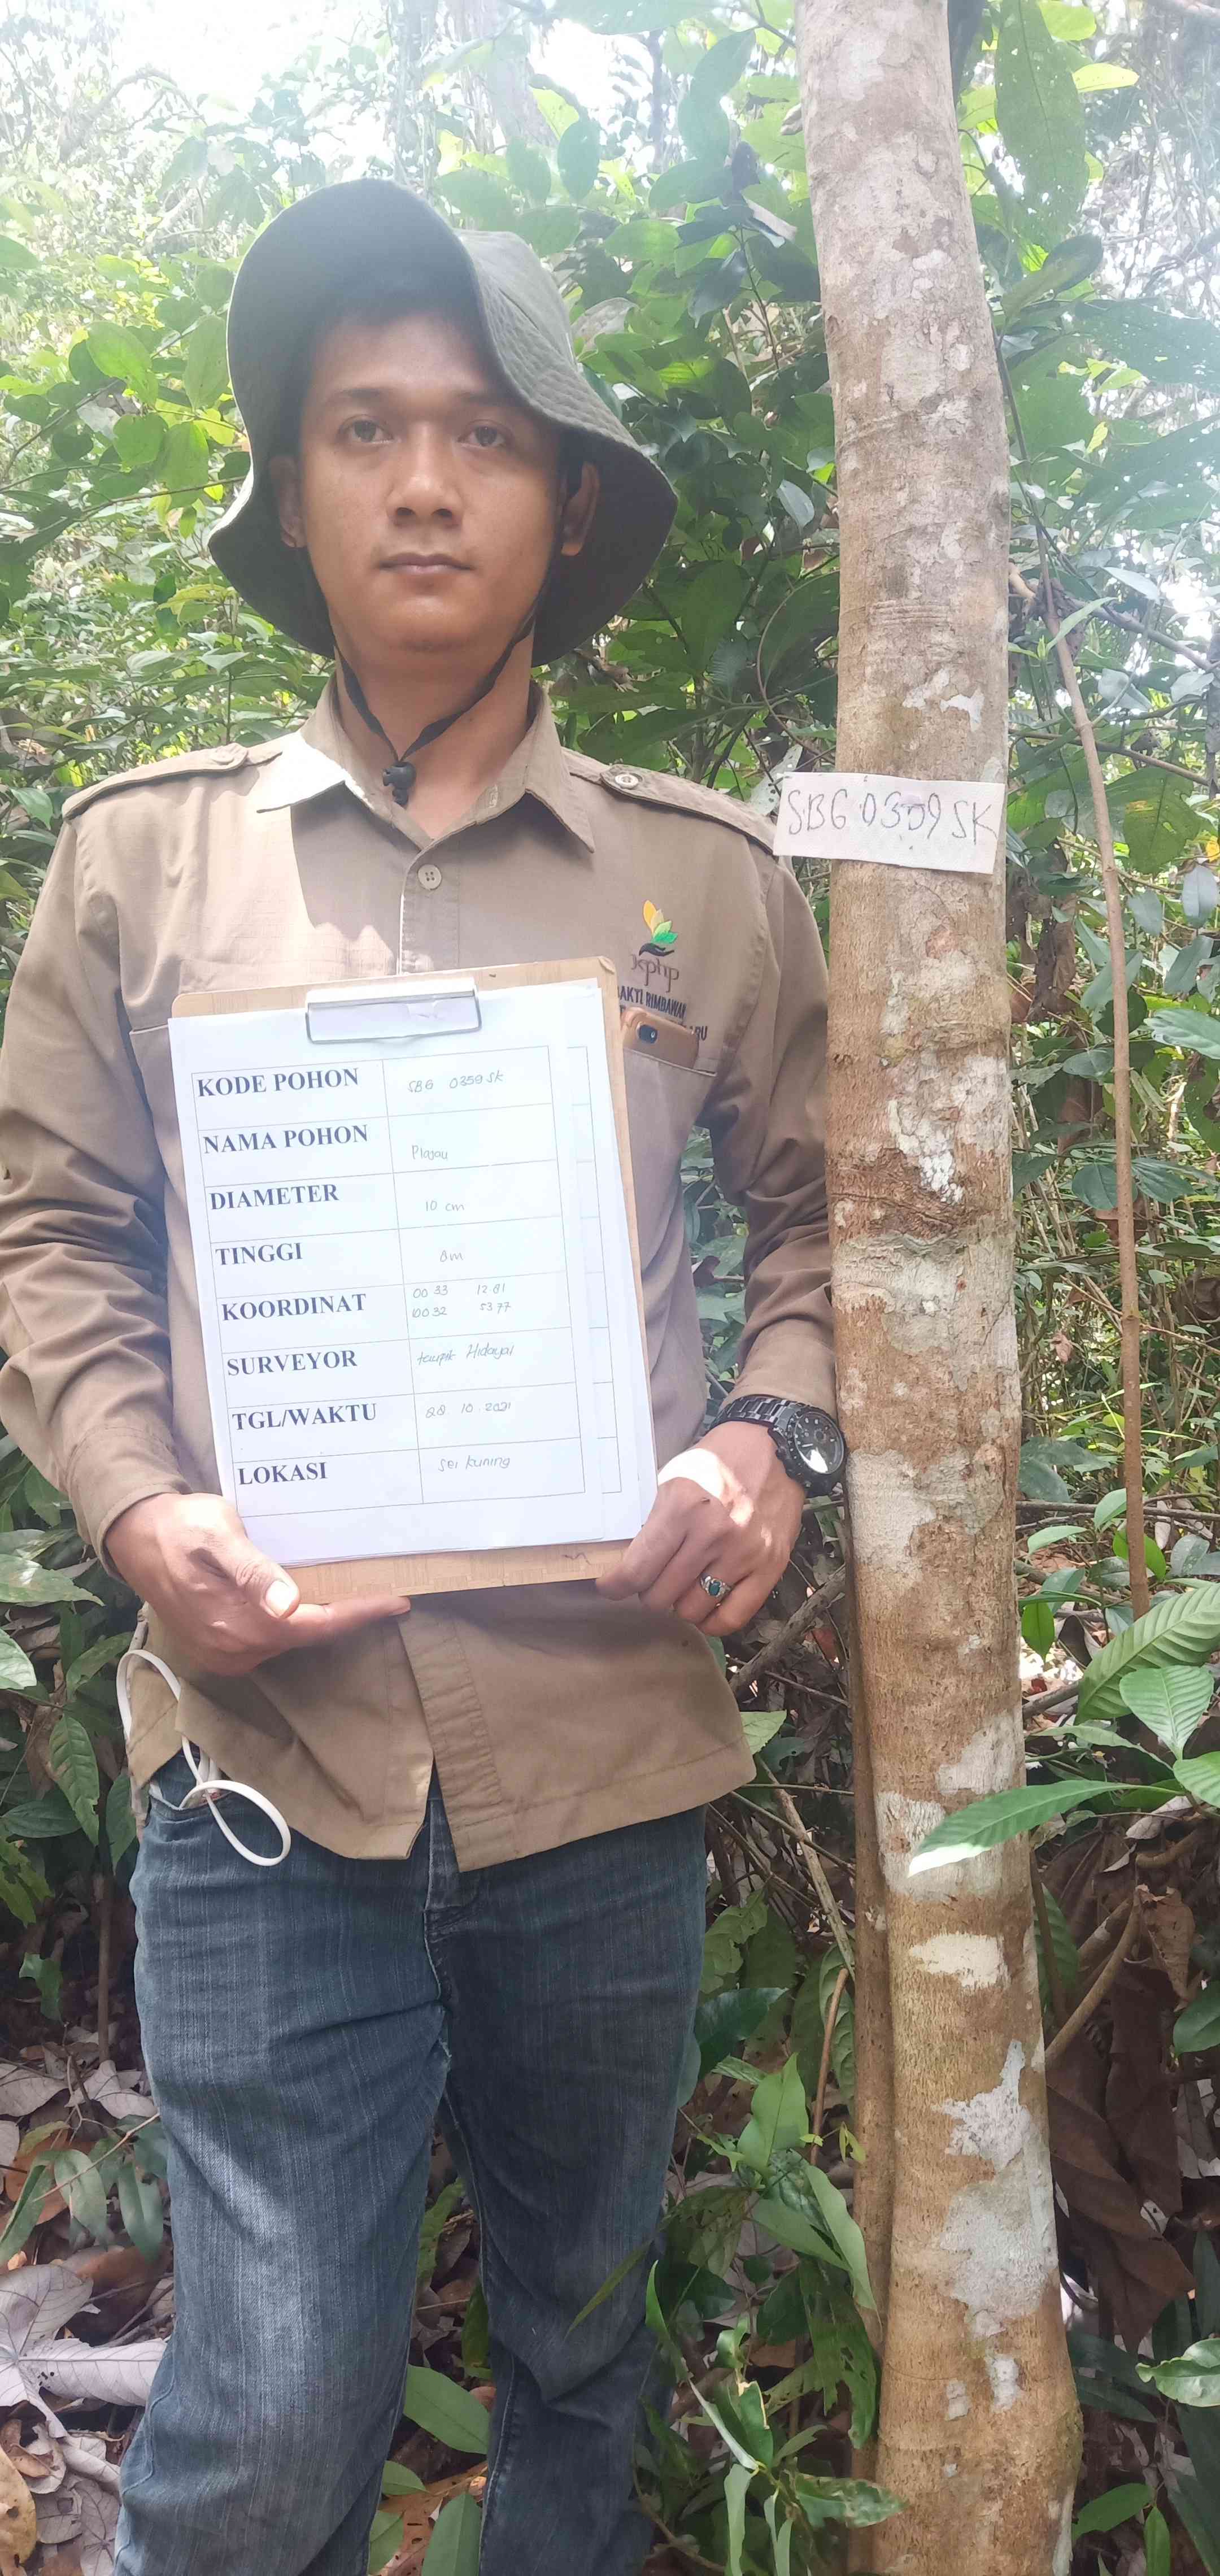 SBG 0359 SK
kphp
BAKTI RIMBAWAN
KODE POHON SBG 0359 SK
NAMA POHON Plajau
DIAMETER 10 cm
TINGGI 8m
KOORDINAT 00 33 12 81
00 32 53 77
SURVEYOR Hidayat
TGL/WAKTU 28. 10. 2021
LOKASI Sei kuning